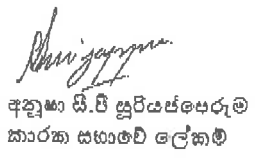 අනූෂා සී.පී සූරියප්පෙරුම
කාරක සභාවේ ලේකම්